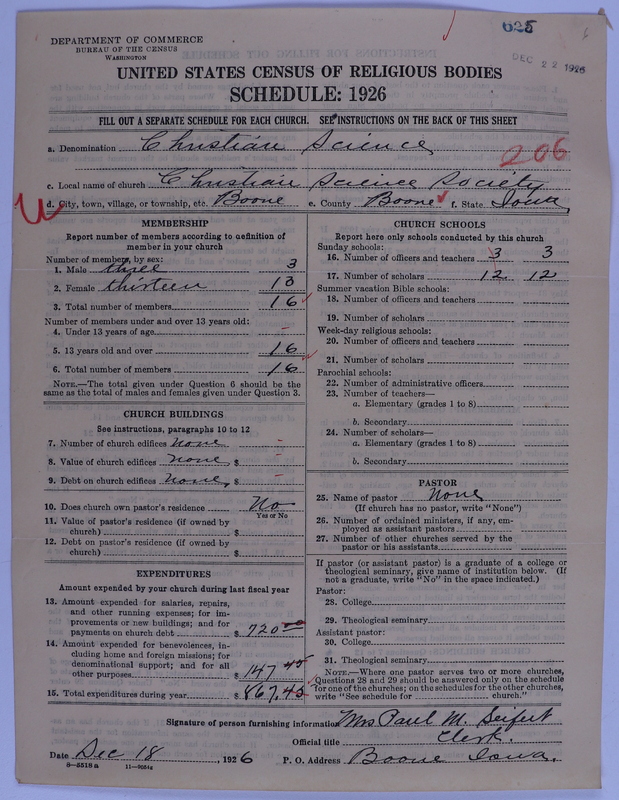 625
DEC 22 1926
DEPARTMENT OF COMMERCE
BUREAU OF THE CENSUS
WASHINGTON
UNITED STATES CENSUS OF RELIGIOUS BODIES
SCHEDULE: 1926
FILL OUT A SEPARATE SCHEDULE FOR EACH CHURCH. SEE INSTRUCTIONS ON THE BACK OF THIS SHEET
a. Denomination Christian Science
206
c. Local name of church Christian Science Society
d. City, town, village, or township, etc. Boone e. County Boone f. State Iowa
MEMBERSHIP
Report number of members according to definition of
member in your church
Number of members, by sex:
1. Male three 3
2. Female thirteen 13
3. Total number of members 16
Number of members under and over 13 years old:
4. Under 13 years of age –
5. 13 years old and over 16
6. Total number of members 16
NOTE.—The total given under Question 6 should be the
same as the total of males and females given under Question 3.
CHURCH BUILDINGS
See instructions, paragraphs 10 to 12
7. Number of church edifices none –
8. Value of church edifices none $ –
9. Debt on church edifices none, $ –
10. Does church own pastor's residence No
Yes or No
11. Value of pastor's residence (if owned by
church) $
12. Debt on pastor's residence (if owned by
church) $
EXPENDITURES
Amount expended by church during last fiscal year
13. Amount expended for salaries, repairs,
and other running expenses; for im-
provements or new buildings; and for
payments on church debt $ 720.00
14. Amount expended for benevolences, in-
cluding home and foreign missions; for
denominational support; and for all
other purposes $ 147 45
15. Total expenditures during year $ 867.45
CHURCH SCHOOLS
Report here only schools conducted by this church
Sunday schools:
16. Number of officers and teachers 3 3
17. Number of scholars 12 12
Summer vacation Bible schools:
18. Number of officers and teachers
19. Number of scholars
Week-day religious schools:
20. Number of officers and teachers
21. Number of scholars
Parochial schools:
22. Number of administrative officers
23. Number of teachers—
a. Elementary (grades 1 to 8)
b. Secondary
24. Number of scholars—
a. Elementary (grades 1 to 8)
b. Secondary
PASTOR
25. Name of pastor None
(If church has no pastor, write "None")
26. Number of ordained ministers, if any, em-
ployed as assistant pastors
27. Number of other churches served by the
pastor or his assistants
If pastor (or assistant pastor) is a graduate of a college or
theological seminary, give name of institution below. (If
not a graduate, write "No" in the space indicated.)
Pastor:
28. College
29. Theological seminary
Assistant pastor:
30. College
31. Theological seminary
NOTE.—Where one pastor serves two or more churches,
Questions 28 and 29 should be answered only on the schedule
for one of the churches; on the schedules for the other churches,
write "See schedule for church."
Signature of person furnishing information Mrs Paul M. Seifert
Official title Clerk.
Date Dec 18, 1926 P. O. Address Boone Iowa.
8—5518a 11—9054a